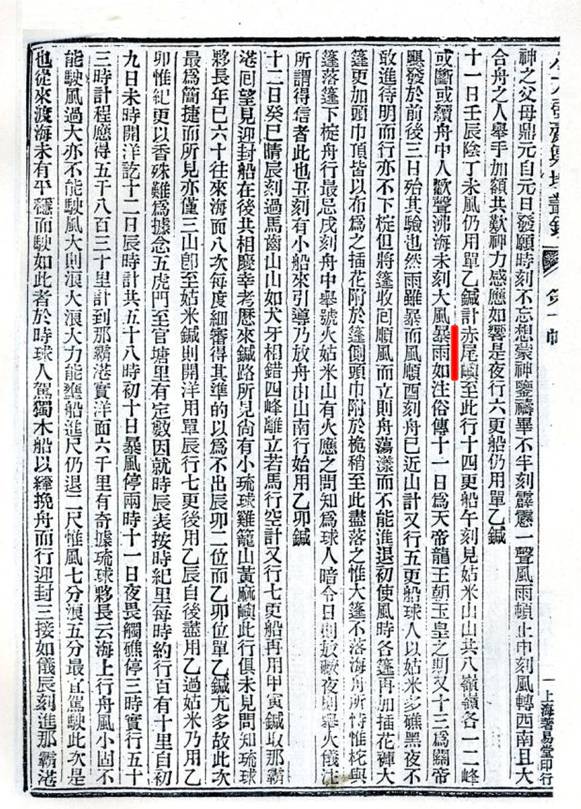 神之父母鼎元自元日發願時刻不忘想蒙神鑒禱畢不半刻霹靂一聲風雨頓止申刻風轉西南且大
合舟之人舉手加額共歎神力感應如響是夜行六更船仍用單乙鍼
十一日壬辰陰丁未風仍用單乙鍼計赤尾嶼至此行十四更船午刻見姑米山山共八嶺嶺各一二峰
或斷或續舟中人歡聲沸海未刻大風暴雨如注俗傳十一日爲天帝龍王朝玉皇之期又十三爲關帝
颶發於前後三日殆其驗也然雨雖暴而風順酉刻舟已近山計又行五更船球人以姑米多礁黑夜不
敢進待明而行亦不下椗但將篷收回順風而立則舟蕩漾而不能進退初使風時各篷再加插花褲大
篷更加頭巾頂皆以布爲之插花附於篷側頭巾附於桅梢至此盡落之惟大篷不落海舟所恃惟柁與
篷落篷下椗舟行最忌戌刻舟中舉號火姑米山有火應之問知爲球人暗令日則放礮夜則舉火儀注
所謂得信者此也丑刻有小船來引導乃放舟由山南行始用乙卯鍼
十二日癸巳晴辰刻過馬齒山山如犬牙相錯四峰離立若馬行空計又行七更船再用甲寅鍼取那霸
港回望見迎封船在後共相慶幸老歷來鍼路所見尚有小琉球雞籠山黃麻嶼此行俱未見問知琉球
夥長年已六十往來海面八次每度細審得其準的以爲不出辰卯二位而乙卯位單乙鍼尤多故此次
最爲簡捷而所見亦僅三山卽至姑米鍼則開洋用單辰行七更後用乙辰自後盡用乙過姑米乃用乙
卯惟紀更以香殊難爲據念五虎門至官塘里有定數因就時辰表按時紀里每時約行百有十里自初
九日未時開洋訖十二日辰時計共五十八時初十日暴風停兩時十一日夜畏觸礁停三時實行五十
三時計程應得五千八百三十里計到那霸港實洋面六千里有奇據琉球夥長云海上行舟風小固不
能駛風過大亦不能駛風大則浪大浪大力能壅船進尺仍退二尺惟風七分浪五分最宜駕駛此次是
也從來渡海未有平穩而駛如此者於時球人駕獨木船以縴挽舟而行迎封三接如儀辰刻進那霸港
上海著易堂印行